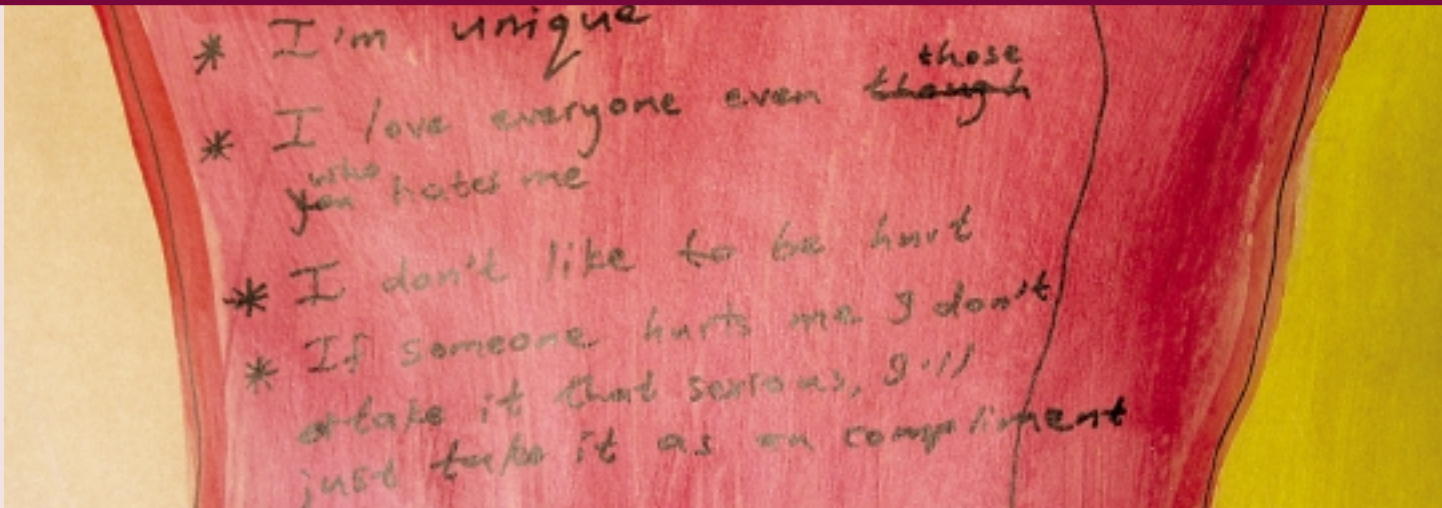 * I'm unique
those
* I love everyone even though
who
you hates me
* I don't like to be hurt
* If someone hurts me I don't
take it that serious, I'll
just take it as an compliment